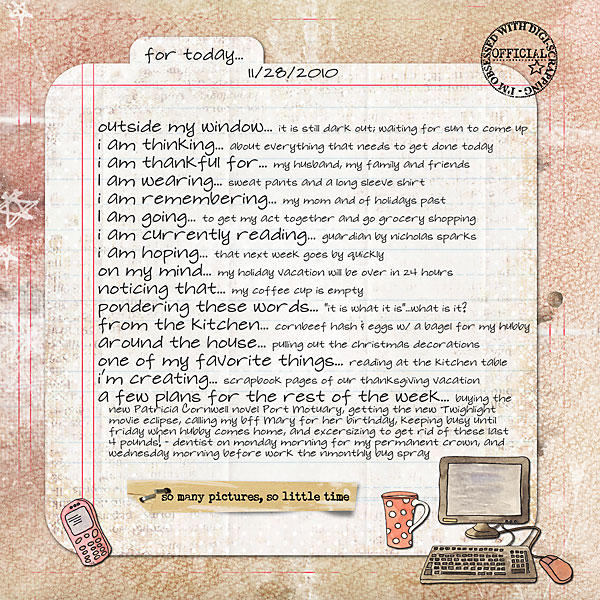 for today...
11/28/2010
I'M OBSESSED WITH DIGI-SCRAPPING -
OFFICIAL
outside my window... it is still dark out; waiting for sun to come up
i am thinking... about everything that needs to get done today
i am thankful for... my husband, my family and friends
I am wearing... sweat pants and a long sleeve shirt
i am remembering... my mom and of holidays past
I am going... to get my act together and go grocery shopping
i am currently reading... guardian by nicholas sparks
i am hoping... that next week goes by quickly
on my mind... my holiday vacation will be over in 24 hours
noticing that... my coffee cup is empty
pondering these words... "it is what it is"...what is it?
from the kitchen... cornbeef hash & eggs w/ a bagel for my hubby
around the house... pulling out the christmas decorations
one of my favorite things... reading at the kitchen table
i'm creating... scrapbook pages of our thanksgiving vacation
a few plans for the rest of the week... buying the
new Patricia Cornwell novel Port Motuary, getting the new Twighlight
movie eclipse, calling my bff Mary for her birthday, keeping busy until
friday when hubby comes home, and excersizing to get rid of these last
4 pounds! - dentist on monday morning for my permanent crown, and
wednesday morning before work the nmonthly bug spray
so many pictures, so little time